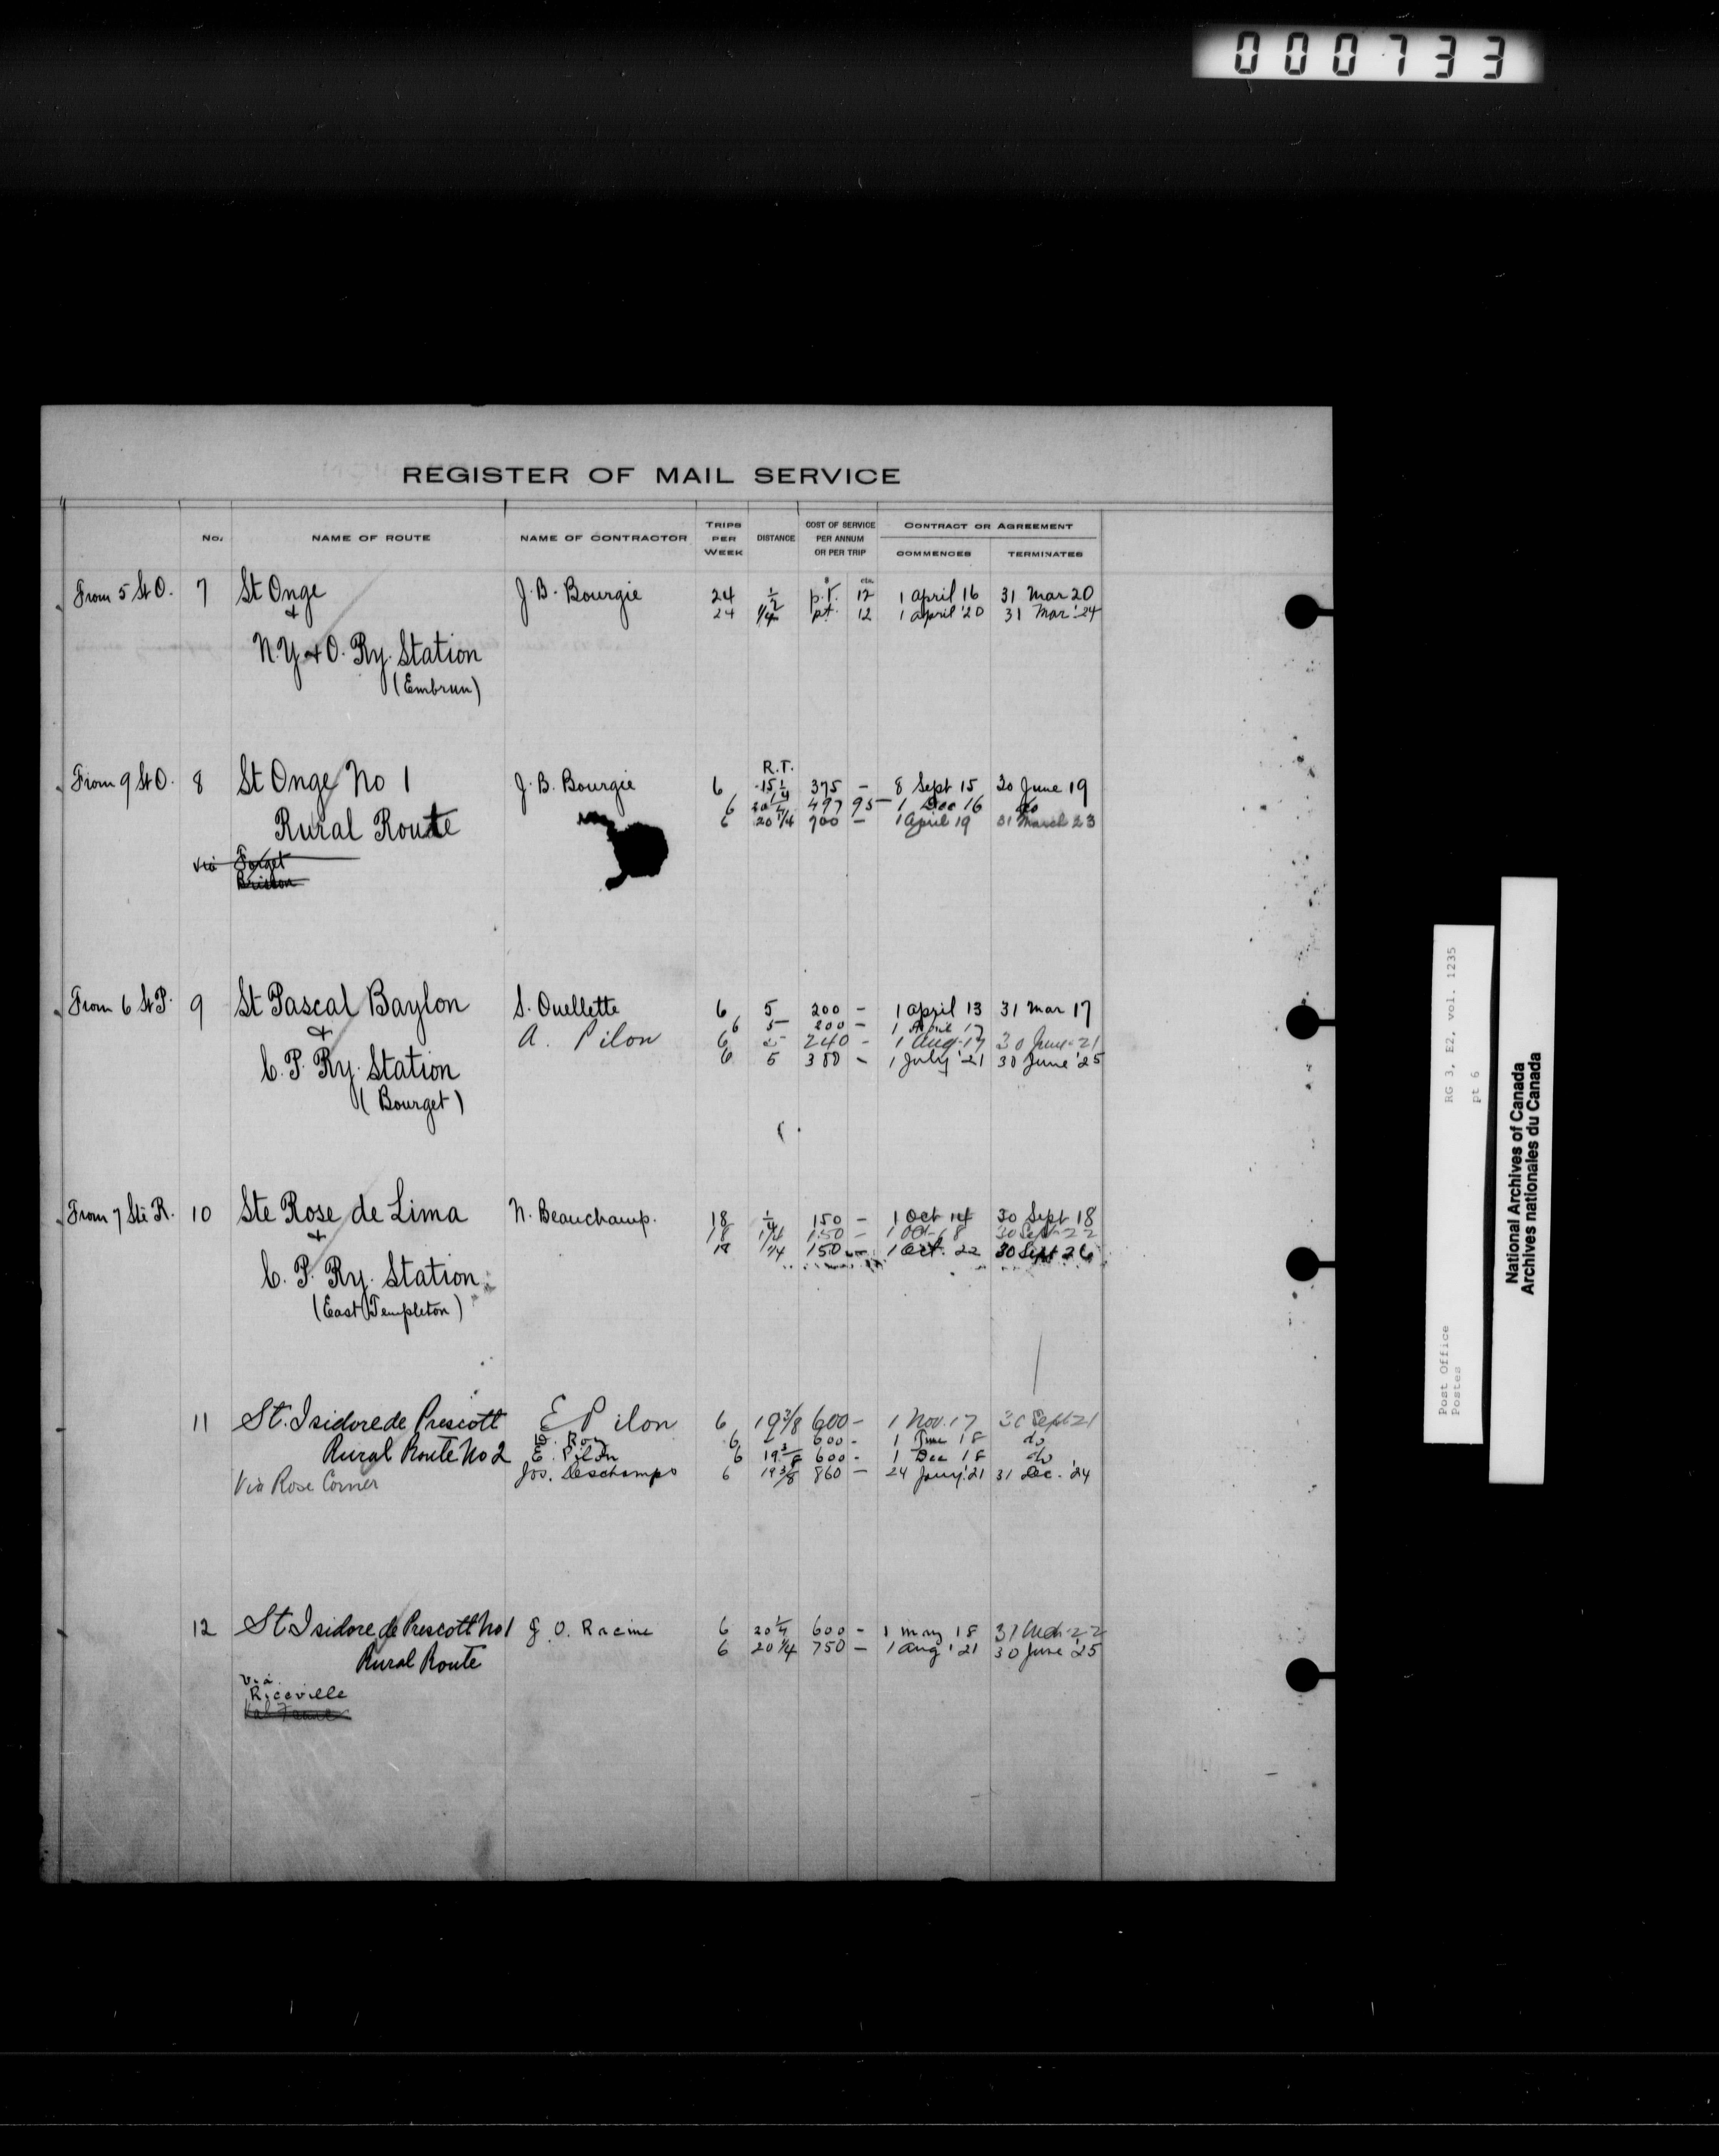 000733
REGISTER OF MAIL SERVICE
No. NAME OF ROUTE NAME OF CONTRACTOR TRIPS PER WEEK DISTANCE COST OF SERVICE PER ANNUM OR PER TRIP CONTRACT OR AGREEMENT COMMENCES TERMINATES
$ cts.
From 5 St O. 7 St Onge J. B. Bourgie 24 1/2 p.T. 12 1 April 16 31 Mar 20
& 24 1/4 pt. 12 1 April '20 31 Mar '24
N.Y & O. Ry. Station
(Embrun)
R.T.
From 9 St O. 8 St Onge No 1 J. B. Bourgie 6 15 1/4 375 - 8 Sept 15 30 June 19
6 20 1/4 497 95 1 Dec 16 do
Rural Route 6 20 1/4 700 - 1 April 19 31 March 23
via Forget
Brisson
From 6 St P. 9 St Pascal Baylon S. Ouellette 6 5 200 - 1 April 13 31 Mar 17
& 6 5 200 - 1 April 17
A. Pilon 6 5 240 - 1 Aug 17 30 June 21
C. P. Ry. Station 6 5 300 - 1 July '21 30 June '25
(Bourget)
From 7 Ste R. 10 Ste Rose de Lima N. Beauchamp. 18 1/4 150 - 1 Oct 14 30 Sept 18
& 18 1/4 150 - 1 Oct 18 30 Sept 22
18 1/4 150 - 1 Oct. 22 30 Sept 26
C. P. Ry. Station
(East Templeton)
11 St. Isidore de Prescott E Pilon 6 19 3/8 600 - 1 Nov. 17 30 Sept 21
Roy 6 600 - 1 June 18 do
Rural Route No 2 E. Pilon 6 19 3/8 600 - 1 Dec 18 do
Via Rose Corner Jos. Deschamps 6 19 3/8 860 - 24 Jany. '21 31 Dec. '24
12 St. Isidore de Prescott No 1 J. O. Racine 6 20 1/4 600 - 1 May 18 31 Mch 22
Rural Route 6 20 1/4 750 - 1 Aug '21 30 June '25
via.
Riceville
Post Office RG 3, E2, vol. 1235
Postes pt 6
National Archives of Canada
Archives nationales du Canada